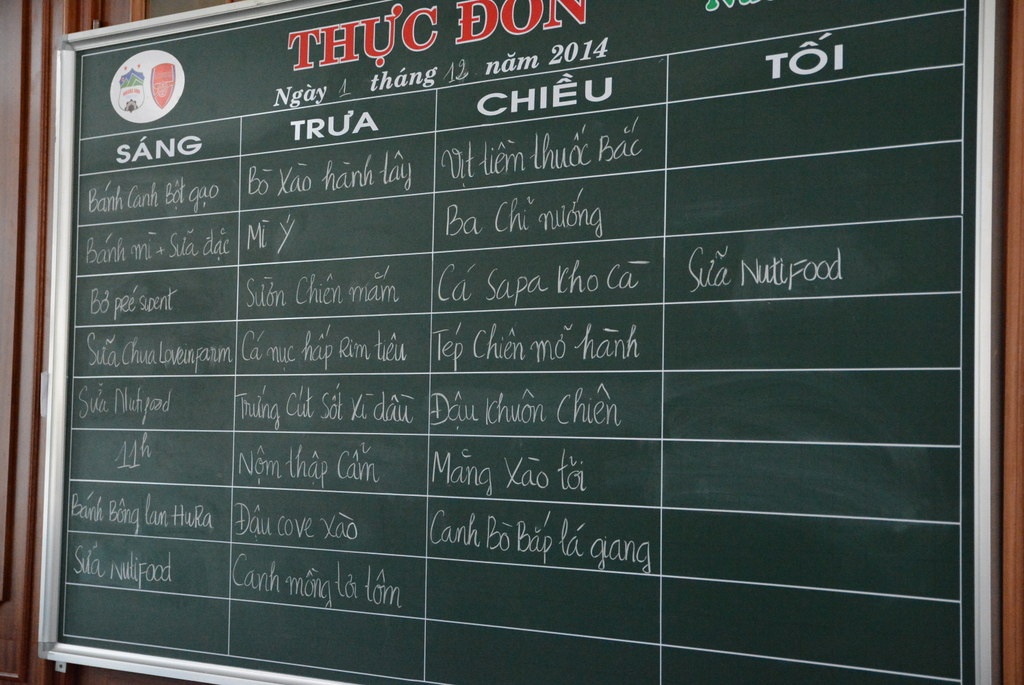 THỰC ĐƠN
Ngày 1 tháng 12 năm 2014
SÁNG TRƯA CHIỀU TỐI
Bánh Canh Bột gạo Bò Xào hành tây Vịt tiềm thuốc Bắc
Bánh mì + Sữa đặc Mì Ý Ba Chỉ nướng
Bơ pré Sườn Chiên mắm Cá Sapa Kho Cà Sữa NutiFood
Sữa Chua Cá nục hấp Kim tiêu Tép Chiên mỡ hành
Sữa Nutifood Trứng Cút Sốt Xì dầu Đậu Khuôn Chiên
11h Nộm thập Cẩm Măng Xào tỏi
Bánh Bông lan HuRa Đậu cove xào Canh Bò Bắp lá giang
Sữa NutiFood Canh mồng tơi tôm